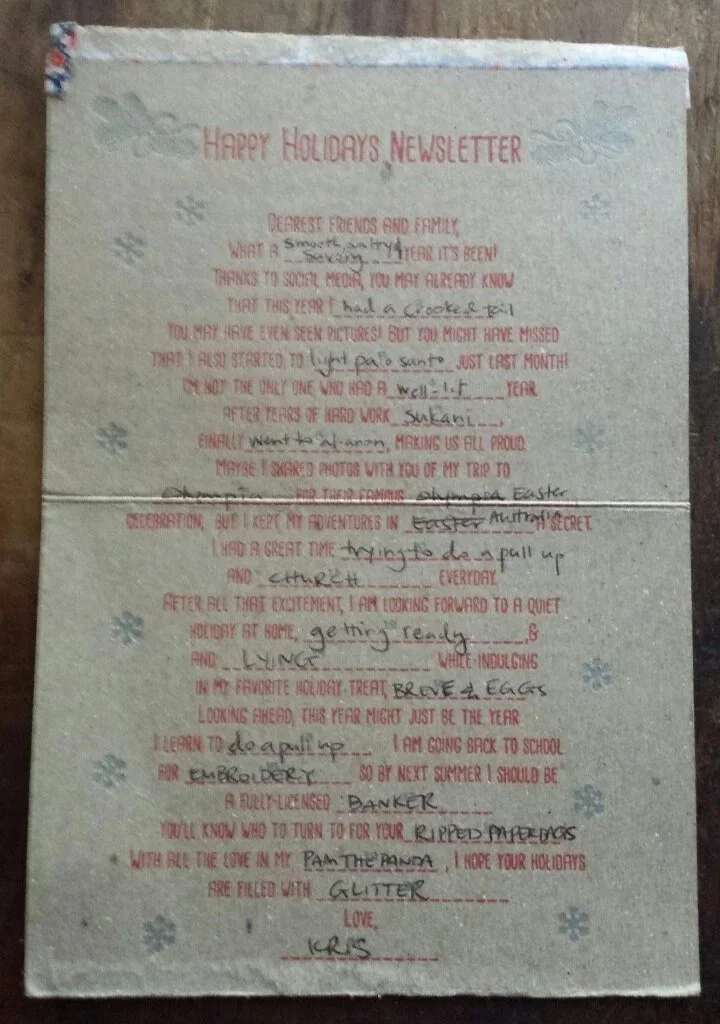 HAPPY HOLIDAYS NEWSLETTER
DEAREST FRIENDS AND FAMILY,
WHAT A smooth, salty & sexy YEAR IT'S BEEN!
THANKS TO SOCIAL MEDIA, YOU MAY ALREADY KNOW
THAT THIS YEAR I had a crooked tail
YOU MAY HAVE EVEN SEEN PICTURES! BUT YOU MIGHT HAVE MISSED
THAT I ALSO STARTED TO light palo santo JUST LAST MONTH!
I'M NOT THE ONLY ONE WHO HAD A well-lit YEAR.
AFTER YEARS OF HARD WORK sukani,
FINALLY went to al-anon, MAKING US ALL PROUD.
MAYBE I SHARED PHOTOS WITH YOU OF MY TRIP TO
Olympia FOR THEIR FAMOUS Olympia Easter
CELEBRATION, BUT I KEPT MY ADVENTURES IN Easter Australia A SECRET.
I HAD A GREAT TIME trying to do a pull up
AND CHURCH EVERYDAY.
AFTER ALL THAT EXCITEMENT, I AM LOOKING FORWARD TO A QUIET
HOLIDAY AT HOME, getting ready, &
AND LYING WHILE INDULGING
IN MY FAVORITE HOLIDAY TREAT, BREVE & EGGS
LOOKING AHEAD, THIS YEAR MIGHT JUST BE THE YEAR
I LEARN TO do a pull up I AM GOING BACK TO SCHOOL
FOR EMBROIDERY SO BY NEXT SUMMER I SHOULD BE
A FULLY-LICENSED BANKER
YOU'LL KNOW WHO TO TURN TO FOR YOUR RIPPED PAPERBAGS
WITH ALL THE LOVE IN MY PAM THE PANDA, I HOPE YOUR HOLIDAYS
ARE FILLED WITH GLITTER
LOVE,
KRIS